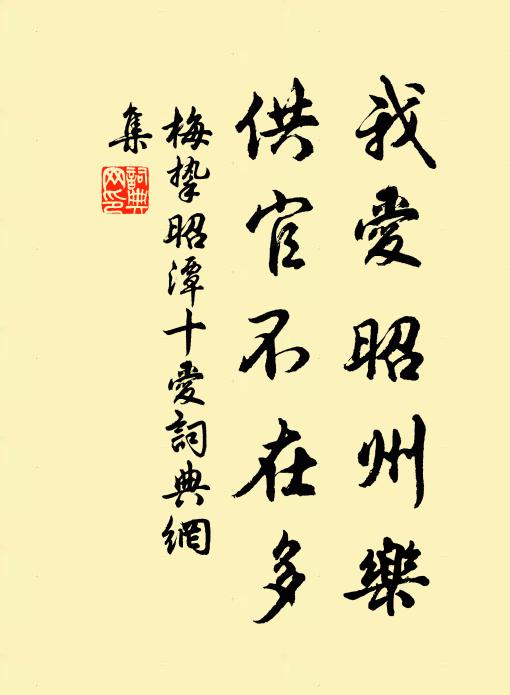 我愛昭州樂
供官不在多
梅摯昭潭十愛詞典網
集
詞典
网印